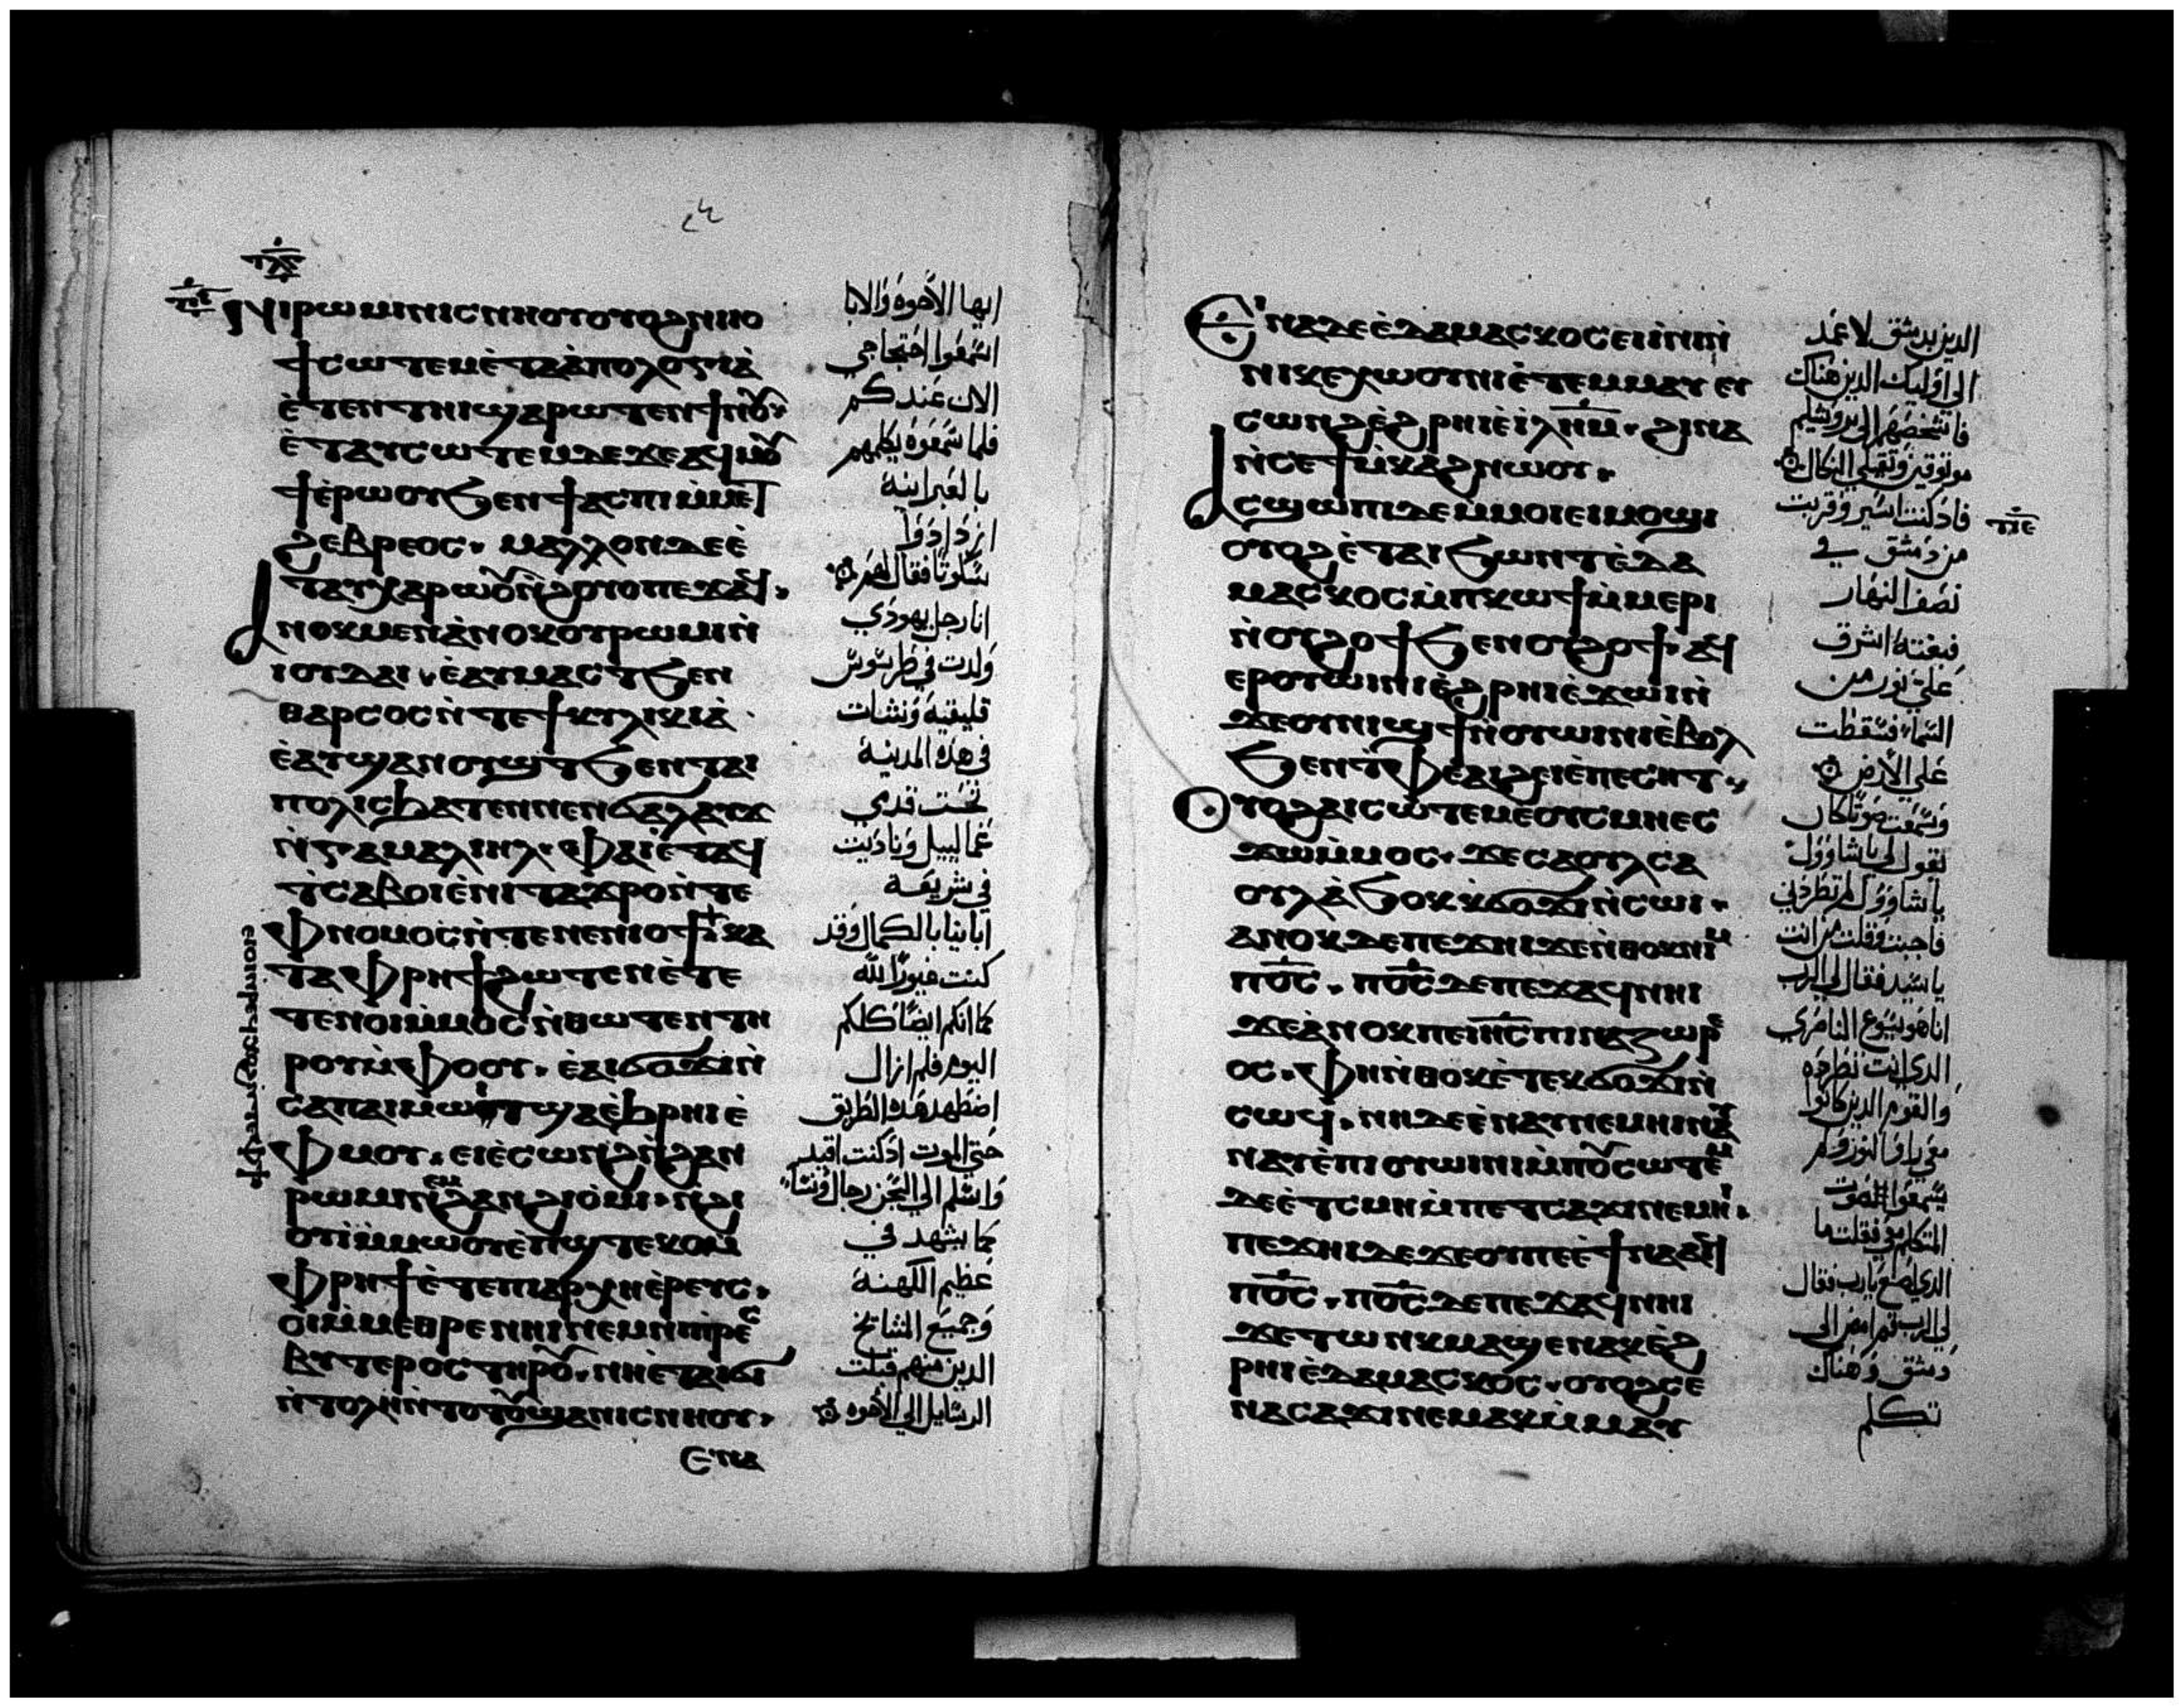 ⲛⲓⲣⲱⲙⲓ ⲛⲓⲥⲛⲏⲟⲩ ⲟⲩⲟϩ ⲛⲓⲓⲟ
ϯ ⲥⲱⲧⲉⲙ ⲉ̀ⲧⲁⲁ̀ⲡⲟⲗⲟⲅⲓⲁ̀
ⲉ̀ⲧⲉⲛⲧⲏⲓ ϣⲁⲣⲱⲧⲉⲛ ϯⲛⲟⲩ
ⲉ̀ⲧⲁⲩⲥⲱⲧⲉⲙ ⲇⲉ ϫⲉ ⲁϥⲙⲟⲩ
ϯ ⲉ̀ⲣⲱⲟⲩ ϧⲉⲛ ϯⲁⲥⲡⲓ ⲙ̀ⲙⲉⲧ
ϩⲉⲃⲣⲉⲟⲥ. ⲙⲁⲗⲗⲟⲛ ⲇⲉ ⲉ̀
ⲧⲁⲩⲭⲁⲣⲱⲟⲩ ⲛ̀ϩⲟⲩⲟ ⲡⲉϫⲁϥ.
ⲁⲛⲟⲕ ⲙⲉⲛ ⲁ̀ⲛⲟⲕ ⲟⲩⲣⲱⲙⲓ ⲛ̀
ⲓⲟⲩⲇⲁⲓ. ⲉ̀ⲁⲩⲙⲁⲥⲧ ϧⲉⲛ
ⲑⲁⲣⲥⲟⲥ ⲛ̀ⲧⲉ ϯⲕⲩⲗⲓⲕⲓⲁ̀
ⲉ̀ⲁⲩϣⲁⲛⲟⲩϣⲧ ϧⲉⲛ ⲧⲁⲓ
ⲡⲟⲗⲓⲥ ϧⲁⲧⲉⲛ ⲛⲉⲛϭⲁⲗⲁⲩϫ
ⲛ̀ⲅⲁⲙⲁⲗⲓⲏⲗ. ⲫⲁⲓ ⲉ̀ⲧⲁϥ
ⲧ̀ⲥⲁⲃⲟⲓ ⲉ̀ⲛⲓⲧⲁϫⲣⲟ ⲛ̀ⲧⲉ
ⲫⲛⲟⲙⲟⲥ ⲛ̀ⲧⲉ ⲛⲉⲛⲓⲟϯ ⲕⲁ
ⲧⲁ ⲫⲣⲏϯ ϩⲱⲧⲉⲛ ⲉ̀ⲧⲉ
ⲧⲉⲛⲟⲓ ⲙ̀ⲙⲟⲥ ⲛ̀ⲑⲱⲧⲉⲛ ⲧⲏ
ⲣⲟⲩ ⲙ̀ⲫⲟⲟⲩ. ⲉ̀ⲁⲓϭⲟϫⲓ ⲛ̀
ⲥⲁ ⲡⲁⲓⲙⲱⲓⲧ ϣⲁ ⲉ̀ϧⲣⲏⲓ ⲉ̀
ⲫⲙⲟⲩ. ⲉⲓⲉ̀ⲥⲱⲛϩ ⲛ̀ϩⲁⲛ
ⲣⲱⲙⲓ ⲛⲉⲙ ϩⲁⲛϩⲓⲟ̀ⲙⲓ. ⲛ̀ϩⲓ
ⲟⲩⲓ̀ ⲙ̀ⲙⲱⲟⲩ ⲉ̀ⲡϣⲧⲉⲕⲟ ⲙ̀
ⲫⲣⲏϯ ⲉ̀ⲧⲉ ⲡⲓⲁⲣⲭⲏⲉ̀ⲣⲉⲩⲥ.
ⲟⲓ ⲙ̀ⲙⲉⲑⲣⲉ ⲛⲏⲓ ⲛⲉⲙ ⲛⲓⲡⲣⲉⲥ
ⲃⲩⲧⲉⲣⲟⲥ ⲧⲏⲣⲟⲩ. ⲛⲏ ⲉ̀ⲧⲁⲓϭⲓ
ⲛ̀ⲧⲟⲗⲏ ⲛ̀ⲧⲟⲧⲟⲩ ϣⲁ ⲛⲓⲥⲛⲏⲟⲩ.
ⲉⲛⲁ
ⲉⲓⲟⲓ ⲛ̀ⲣⲉϥⲭⲟϩ ⲙ̀ⲫϯ
ايها الاخوه والابا
اسمعوا احتجاجي
الان عندكم
فلما سمعوه يكلمهم
بالعبرانية
ازدادوا
سكوتا فقال لهم
انا رجل يهودي
ولدت في طرسوس
قليقيه ونشات
في هذه المدينة
تحت قدمي
غمالييل وتادبت
في شريعة
ابائنا بالكمال وقد
كنت غيورا لله
كما انكم ايضا كلكم
اليوم فلم ازال
اضطهد هذه الطريق
حتي الموت اذ كنت اقيد
واسلم الي السجن رجال ونسا
كما يشهد لي
عظيم الكهنة
وجميع المشايخ
الذين منهم قبلت
الرسايل الي الاخوه
ⲉⲛⲁ ⲇⲉ ⲉ̀ⲇⲁⲙⲁⲥⲕⲟⲥ ⲉⲓⲛ̀ⲛⲓ
ⲛⲓⲕⲉⲭⲱⲟⲩⲛⲓ ⲉ̀ⲧⲉⲙⲙⲁⲩ ⲉⲓ
ⲥⲱⲛϩ ⲉ̀ϩⲣⲏⲓ ⲉ̀ⲓ̀ⲗⲏⲙ. ϩⲓⲛⲁ
ⲛ̀ⲥⲉϯⲙ̀ⲕⲁϩ ⲛⲱⲟⲩ.
ⲁⲥϣⲱⲡⲓ ⲇⲉ ⲙ̀ⲙⲟⲓ ⲉⲓⲙⲟϣⲓ
ⲟⲩⲟϩ ⲉ̀ⲧⲁⲓϧⲱⲛⲧ ⲉ̀ⲇⲁ
ⲙⲁⲥⲕⲟⲥ ⲙ̀ⲡⲕⲱϯ ⲙ̀ⲙⲉⲣⲓ
ⲛ̀ⲟⲩϩⲟϯ ϧⲉⲛ ⲟⲩϩⲟϯ. ⲁϥ
ⲉⲣⲟⲩⲱⲓⲛⲓ ⲉ̀ϩⲣⲏⲓ ⲉ̀ϫⲱⲓ ⲛ̀
ϫⲉ ⲟⲩⲛⲓϣϯ ⲛ̀ⲟⲩⲱⲓⲛⲓ ⲉ̀ⲃⲟⲗ
ϧⲉⲛ ⲧ̀ⲫⲉ ⲁⲓϩⲉⲓ ⲉ̀ⲡⲉⲥⲏⲧ.
ⲟⲩⲟϩ ⲁⲓⲥⲱⲧⲉⲙ ⲉⲟⲩⲥⲙⲏ ⲉⲥ
ϫⲱ ⲙ̀ⲙⲟⲥ. ϫⲉ ⲥⲁⲟⲩⲗ ⲥⲁ
ⲟⲩⲗ ⲁ̀ϧⲟⲕ ⲕϭⲟϫⲓ ⲛ̀ⲥⲱⲓ.
ⲁⲛⲟⲕ ⲇⲉ ⲡⲉϫⲏⲓ ϫⲉ ⲛ̀ⲑⲟⲕ ⲛⲓⲙ
ⲡⲟ̅ⲥ̅. ⲡⲟ̅ⲥ̅ ⲇⲉ ⲡⲉϫⲁϥ ⲛⲏⲓ
ϫⲉ ⲁ̀ⲛⲟⲕ ⲡⲉ ⲓⲏ̅ⲥ̅ ⲡⲓⲛⲁⲍⲱⲣⲉ
ⲟⲥ. ⲫⲏ ⲛ̀ⲑⲟⲕ ⲉ̀ⲧⲉⲕϭⲟϫⲓ ⲛ̀
ⲥⲱϥ. ⲛⲏ ⲇⲉ ⲉ̀ⲛⲁⲩⲛⲉⲙⲏⲓ ⲛⲁⲩ
ⲛⲁⲩ ⲉ̀ⲡⲓⲟⲩⲱⲓⲛⲓ ⲙ̀ⲡⲟⲩⲥⲱⲧⲉⲙ
ⲇⲉ ⲉ̀ⲧⲥⲙⲏ ⲙ̀ⲡⲉⲧⲥⲁϫⲓ ⲛⲉⲙⲏⲓ.
ⲡⲉϫⲏⲓ ⲇⲉ ϫⲉ ⲟⲩ ⲡⲉ ⲉ̀ϯⲛⲁⲁⲓϥ
ⲡⲟ̅ⲥ̅. ⲡⲟ̅ⲥ̅ ⲇⲉ ⲡⲉϫⲁϥ ⲛⲏⲓ
ϫⲉ ⲧⲱⲛⲕ ⲙⲁϣⲉⲛⲁⲕ ⲉ̀ϩ
ⲣⲏⲓ ⲉ̀ⲇⲁⲙⲁⲥⲕⲟⲥ. ⲟⲩⲟϩ ⲥⲉ
ⲛⲁⲥⲁϫⲓ ⲛⲉⲙⲁⲕ ⲙ̀ⲙⲁⲩ
الذين بدمشق لاعمد
الي اوليك الذين هناك
فاشخصهم الي يروشليم
موثوقين
فاذ كنت اسير وقربت
من دمشق في
نصف النهار
فبغتة اشرق
علي نور من
السماء فسقطت
علي الارض
وسمعت صوتا كان
يقول لي يا شاوول
يا شاوول لم تطردني
فاجبت وقلت من انت
يا سيد فقال لي الرب
انا هو يسوع الناصري
الذي انت تطرده
والقوم الذين كانوا
معي راوا النور ولم
يسمعوا الصوت
المتكلم معي فقلت ما
الذي اصنع يارب فقال
لي الرب قم امض الي
دمشق وهناك
تكلم